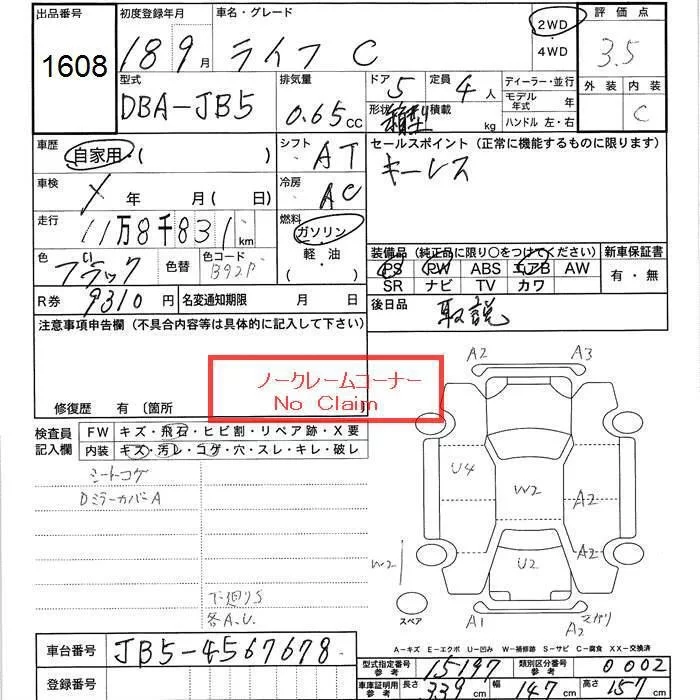 出品番号 初度登録年月 車名・グレード 評価点
1608 18 9月 ライフ C 2WD 4WD 3.5
型式 排気量 ドア 定員 ディーラー・並行 外装 内装
DBA-JB5 0.65cc 5 4人 モデル年式 年 C
形状 箱型 積載 kg ハンドル 左・右
車歴 自家用・( ) シフト AT セールスポイント(正常に機能するものに限ります)
車検 X 年 月( 日) 冷房 AC キーレス
走行 11万8千831km 燃料 ガソリン
軽・油
( )
色 ブラック 色替 色コード B92P
装備品(純正品に限り〇をつけてください) 新車保証書
PS PW ABS エアB AW 有・無
SR ナビ TV カワ
R券 9310円 名変通知期限 月 日 後日品 取説
注意事項申告欄(不具合内容等は具体的に記入して下さい)
ノークレームコーナー
No Claim
修復歴 有〔箇所
検査員記入欄 FW キズ・飛石・ヒビ割・リペア跡・X要
内装 キズ・汚レ・コゲ・穴・スレ・キレ・破レ
シートコゲ
DミラーカバーA
下廻りS
各A.U.
A2 A3
U4 W2 A2
W2 U2 A2
スペア A1 A2
A-キズ E-エクボ U-凹み W-補修跡 S-サビ C-腐食 XX-交換済
車台番号 JB5-4567678
登録番号
型式指定番号 参考 15197 類別区分番号 参考 0002
車庫証明用 参考 長さ 339cm 幅 147cm 高さ 157cm